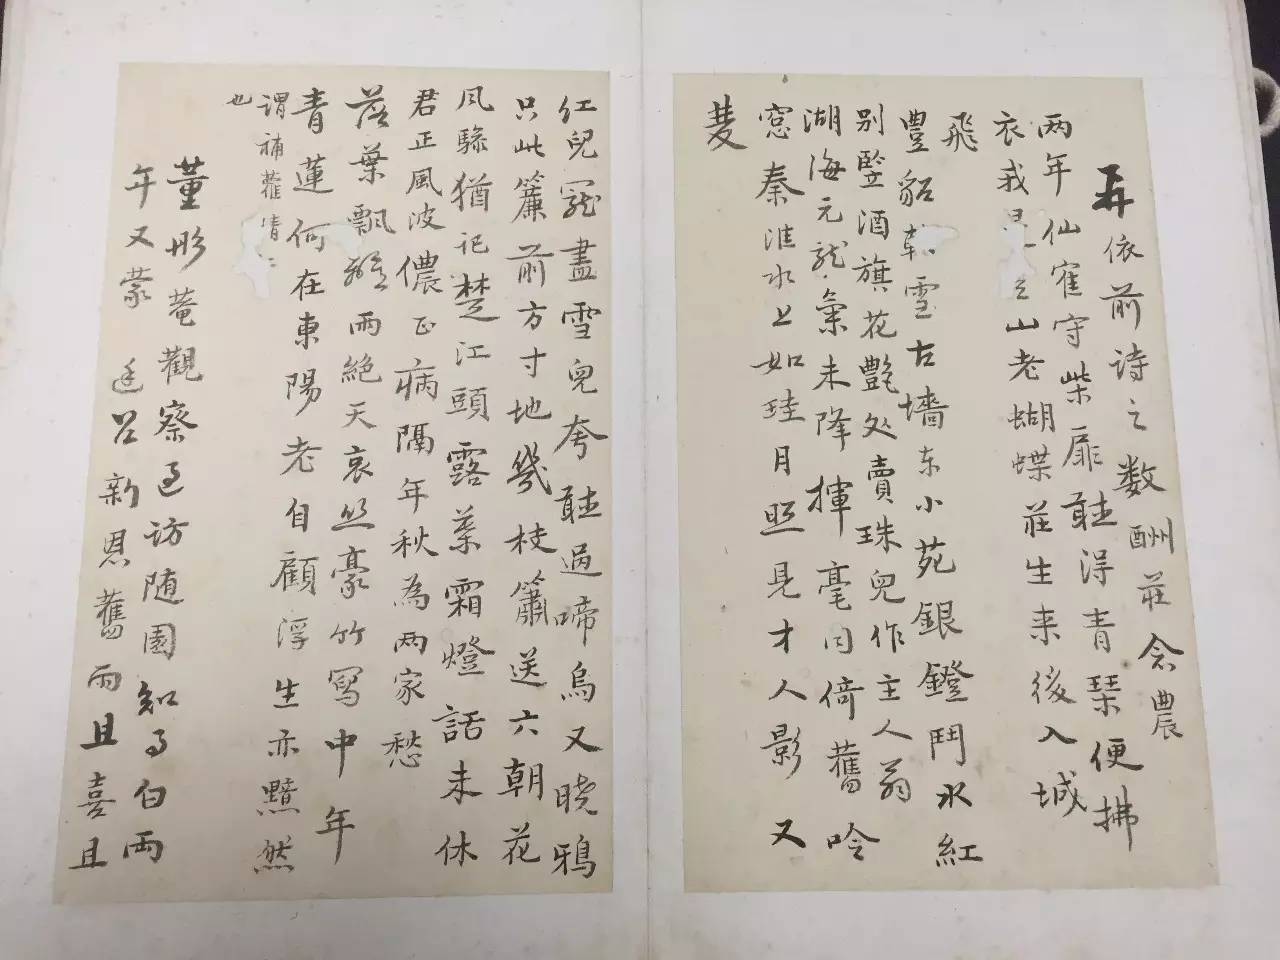 再依前诗之数酬莊念農
两年仙寉守柴扉聽得青琹便拂
衣我是山老蝴蝶莊生来後入城
飛
豊貂雪古墻东小苑銀鐙鬥水紅
别墅酒旗花艷处賣珠兒作主人翁
湖海元龍氣未降揮毫同倚舊吟
窓秦淮水上如珪月照見才人影又
雙
紅兒寵盡雪兒夸聽過啼烏又晓鴉
只此簾前方寸地幾枝簫送六朝花
風騷猶记楚江頭露葉霜燈話未休
君正風波儂正病隔年秋為两家愁
落葉飄殘雨絶天哀丝豪竹寫中年
青蓮何在東陽老自顧浮生亦黯然
謂補蘿情
也
董彤菴觀察过訪随園知事白两
年又蒙 廷召新恩舊雨且喜且